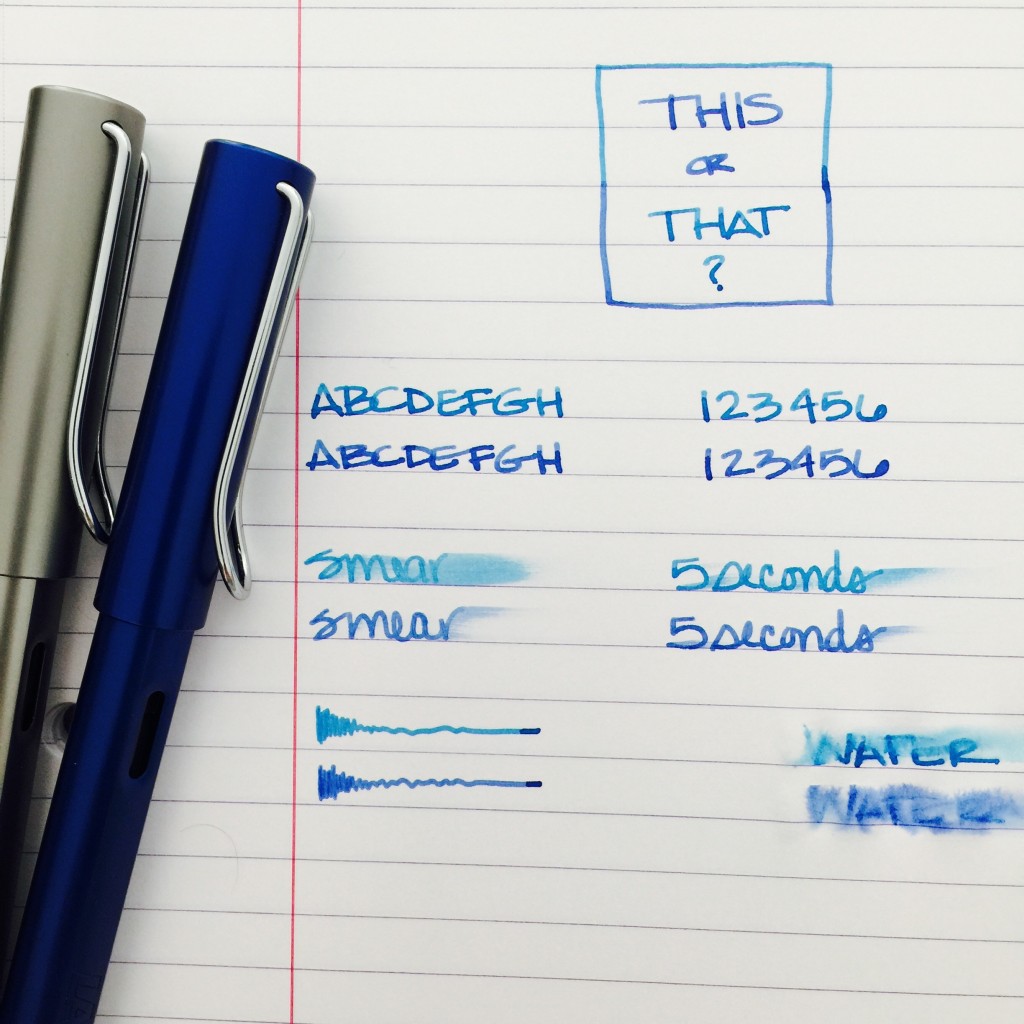 THIS
OR
THAT
?
ABCDEFGH 123456
ABCDEFGH 123456
smear 5 seconds
smear 5 seconds
WATER
WATER